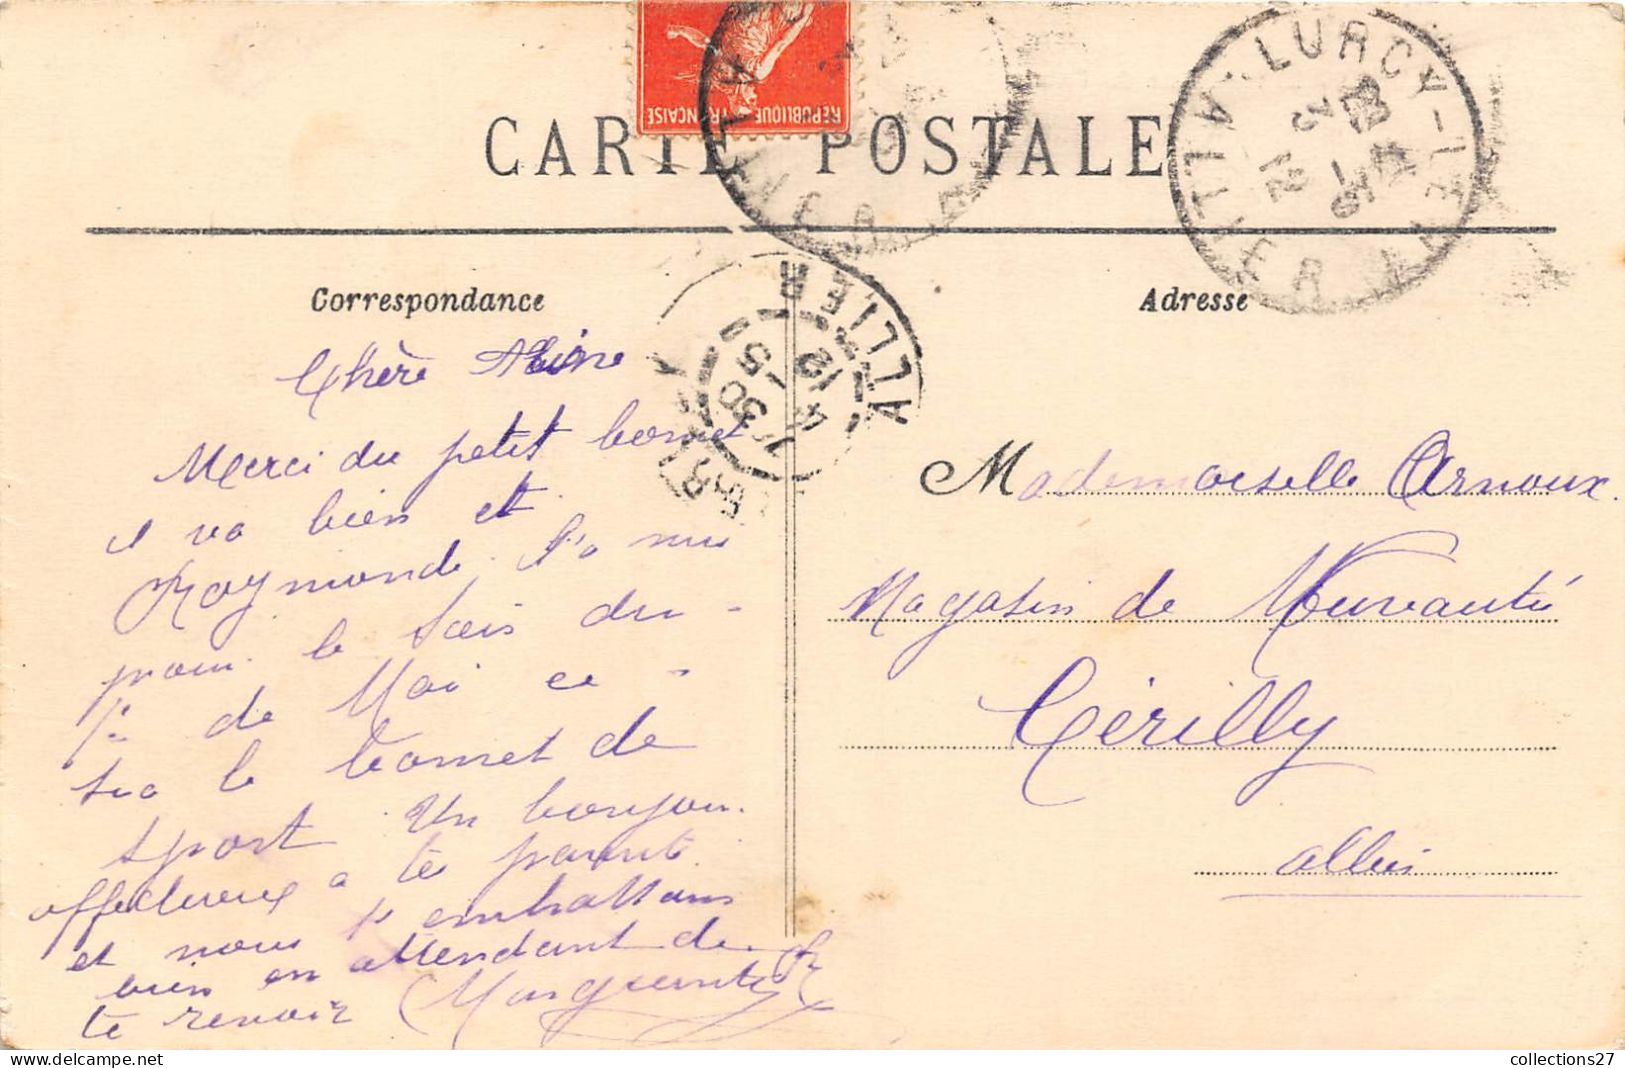 RÉPUBLIQUE FRANÇAISE
CARTE POSTALE
LURCY-LÉVY
ALLIER
3 - 5
12
Correspondance
Adresse
ALLIER
7 30
4 - 5
12
Chère
Merci du petit bonnet
il va bien et
Raymonde l'a mis
pour la fois du
1er de Mai ce
sra le bonnet de
sport Un bonjour
affectueux a te parents
et nous t'embrassons
bien en attendant de
te revoir Marguerite
Mademoiselle Arnoux
Magasin de Nuveauté
Cérilly
Allier
collections27